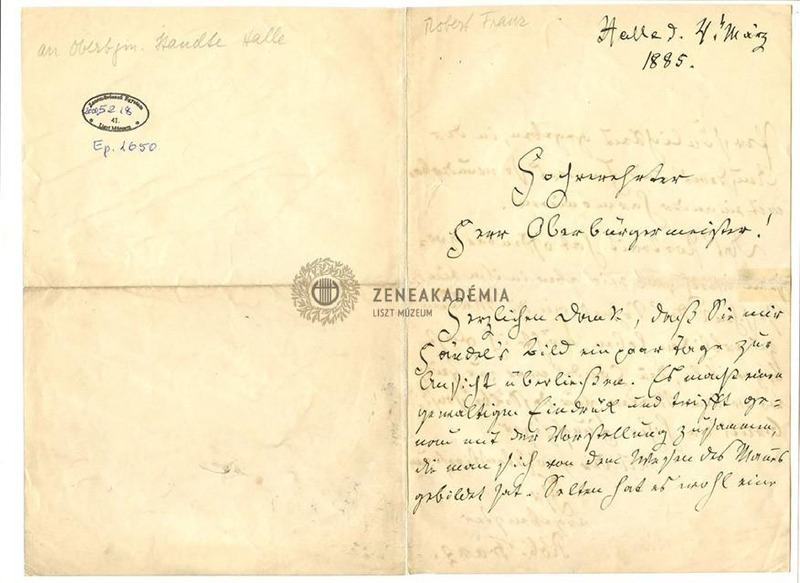 an Obertgm. Standte Halle
52 18
41.
Ep. 2650
Robert Franz
Halle d. 4t März
1885.
Hochverehrter
Herr Oberbürgermeister!
ZENEAKADÉMIA
LISZT MÚZEUM
Herzlichen Dank, daß Sie mir
Händel's Bild ein paar Tage zur
Ansicht überließen. Es macht einen
gewaltigen Eindruck und trifft ge-
nau mit der Vorstellung zusammen,
die man sich von dem Wesen des Mannes
gebildet hat. Selten hat es wohl eine
Rob. Franz.